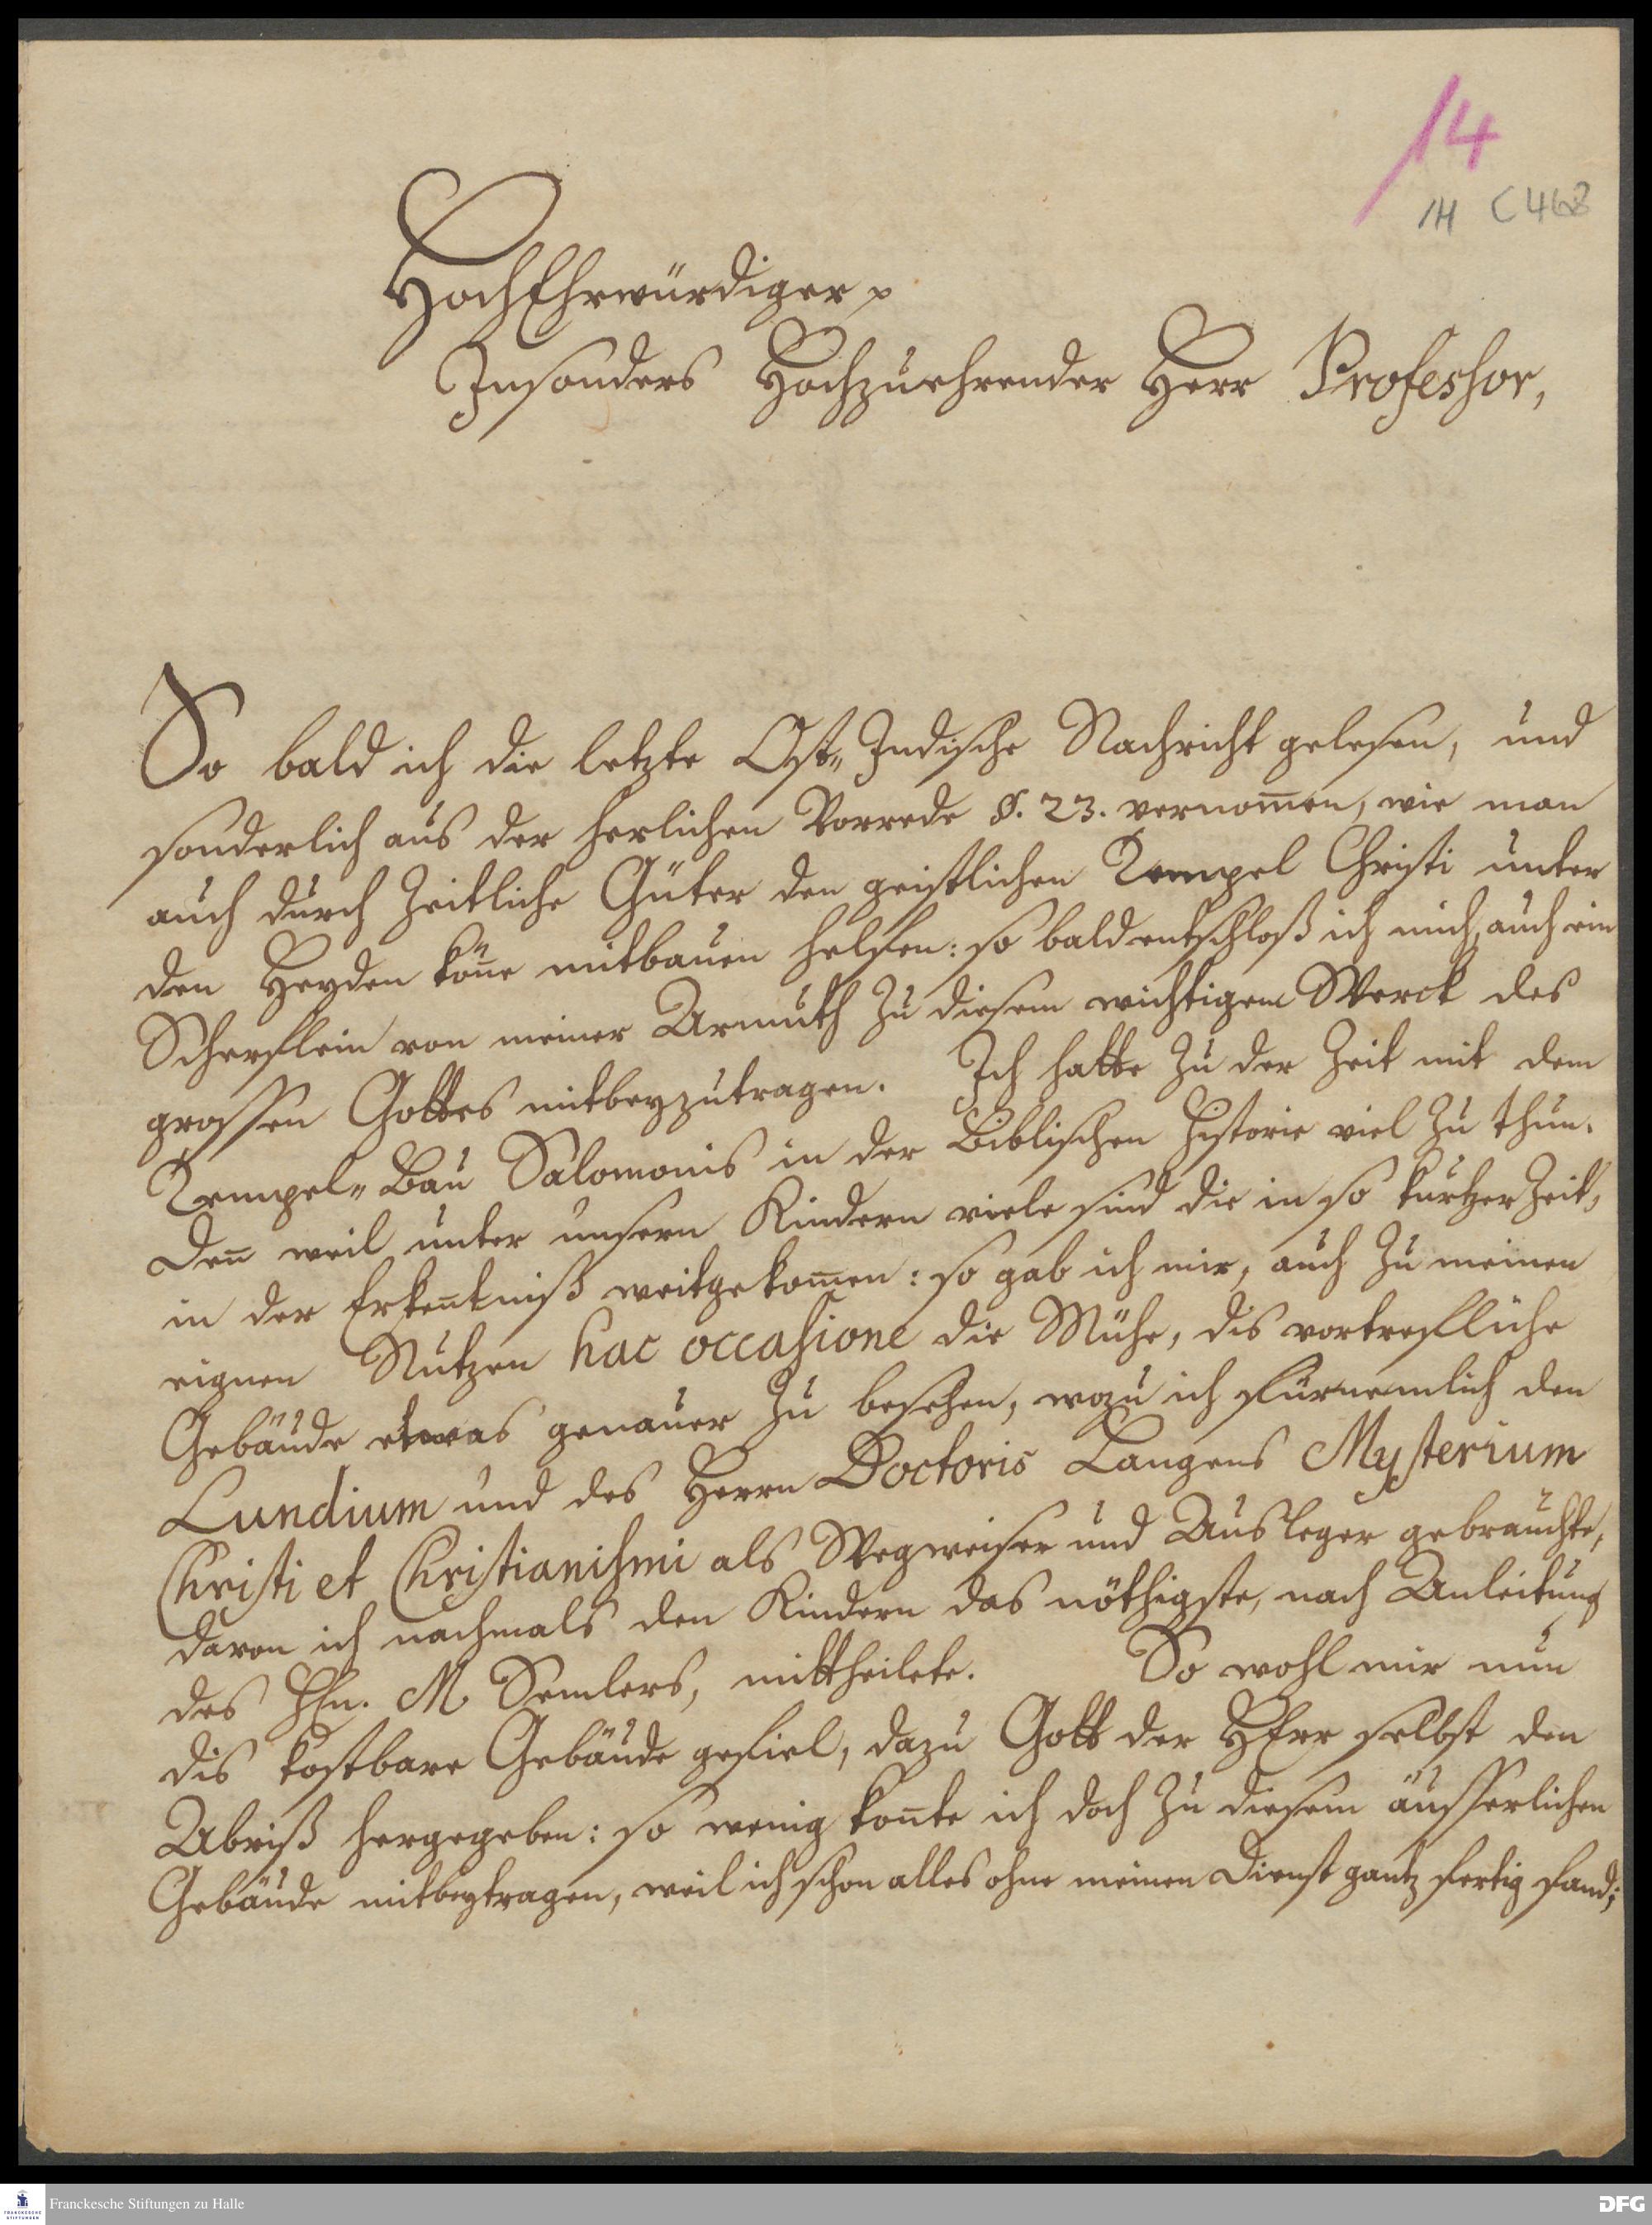 14
1H C 468
HochEhrwürdiger p
Insonders Hochzuehrender Herr Professor,
So bald ich die letzte Ost„Indische Nachricht gelesen, und
sonderlich aus der herlichen Vorrede §. 23. vernom̅en, wie man
auch durch Zeitliche Güter den geistlichen Tempel Christi unter
den Heyden kön̅e mitbauen helfen: so bald entschloß ich mich, auch ein
Scherflein von meiner Armuth zu diesem wichtigem Werck des
grossen Gottes mitbeyzutragen. Ich hatte zu der Zeit mit dem
Tempel„Bau Salomonis in der Biblischen Historie viel zu thun.
Den̅ weil unter unsern Kindern viele sind die in so kurtzer Zeit,
in der Erken̅tniß weitgekom̅en: so gab ich mir, auch zu meinen
eignen Nutzen hac occasione die Mühe, dis vortrefliche
Gebäude etwas genauer zu besehen, wozu ich fürnemlich den
Lundium und des Herrn Doctoris Langens Mysterium
Christi et Christianismi als Wegweiser und Ausleger gebrauchte,
davon ich nachmals den Kindern das nöthigste, nach Anleitung
des Hn. M Semlers, mittheilete. So wohl mir nun
dis kostbare Gebäude gefiel, dazu Gott der HErr selbst den
Abriß hergegeben: so wenig kon̅te ich doch zu diesem äusserlichen
Gebäude mitbeytragen, weil ich schon alles ohne meinen Dienst gantz fertig fand;
Franckesche Stiftungen zu Halle
FRANCKESCHE
STIFTUNGEN
DFG